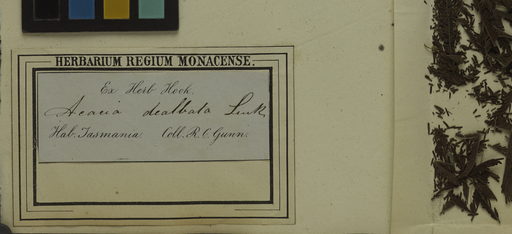 HERBARIUM REGIUM MONACENSE.
Ex Herb Hook.
Acacia dealbata Link
Hab. Tasmania. Coll. R. C. Gunn.